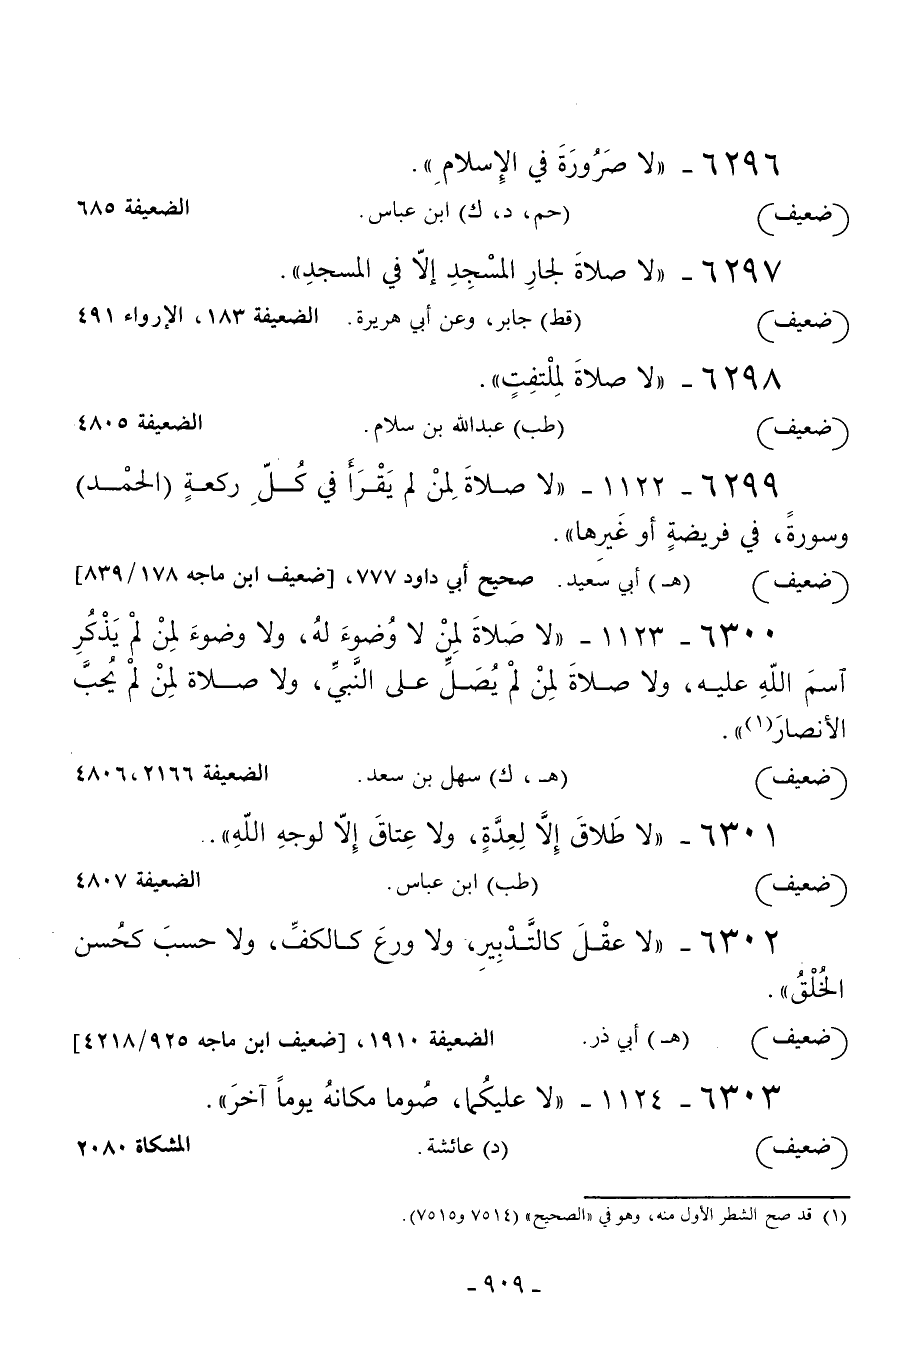 ٦٢٩٦ - «لا صَرُورَةَ في الإِسلامِ».
(ضعيف) (حم، د، ك) ابن عباس. الضعيفة ٦٨٥
٦٢٩٧ - «لا صلاةَ لجارِ المسْجِدِ إلاّ في المسجدِ».
(ضعيف) (قط) جابر، وعن أبي هريرة. الضعيفة ١٨٣، الإرواء ٤٩١
٦٢٩٨ - «لا صلاةَ لِمُلْتفِتٍ».
(ضعيف) (طب) عبدالله بن سلام. الضعيفة ٤٨٠٥
٦٢٩٩ - ١١٢٢ - «لا صلاةَ لِمنْ لم يَقْرَأْ في كُلِّ ركعةٍ (الحمْد)
وسورةً، في فريضةٍ أو غَيرِها».
(ضعيف) (هـ) أبي سعيد. صحيح أبي داود ٧٧٧، [ضعيف ابن ماجه ٨٣٩/١٧٨]
٦٣٠٠ - ١١٢٣ - «لا صَلاةَ لِمنْ لا وُضوءَ لهُ، ولا وضوءَ لِمنْ لمْ يَذْكُرِ
آسمَ اللّهِ عليه، ولا صلاةَ لِمنْ لمْ يُصَلِّ على النَّبيِّ، ولا صلاة لِمنْ لمْ يُحبَّ
الأنصارَ(١)».
(ضعيف) (هـ، ك) سهل بن سعد. الضعيفة ٢١٦٦، ٤٨٠٦
٦٣٠١ - «لا طَلاقَ إلَّا لِعِدَّةٍ، ولا عِتاقَ إلاّ لوجهِ اللّهِ».
(ضعيف) (طب) ابن عباس. الضعيفة ٤٨٠٧
٦٣٠٢ - «لا عقْلَ كالتَّدْبِيرِ، ولا ورعَ كالكفِّ، ولا حسبَ كحُسن
الخُلْقُ».
(ضعيف) (هـ) أبي ذر. الضعيفة ١٩١٠، [ضعيف ابن ماجه ٤٢١٨/٩٢٥]
٦٣٠٣ - ١١٢٤ - «لا عليكُما، صُوما مكانهُ يوماً آخرَ».
(ضعيف) (د) عائشة. المشكاة ٢٠٨٠
(١) قد صح الشطر الأول منه، وهو في «الصحيح» (٧٥١٤ و٧٥١٥).
- ٩٠٩ -